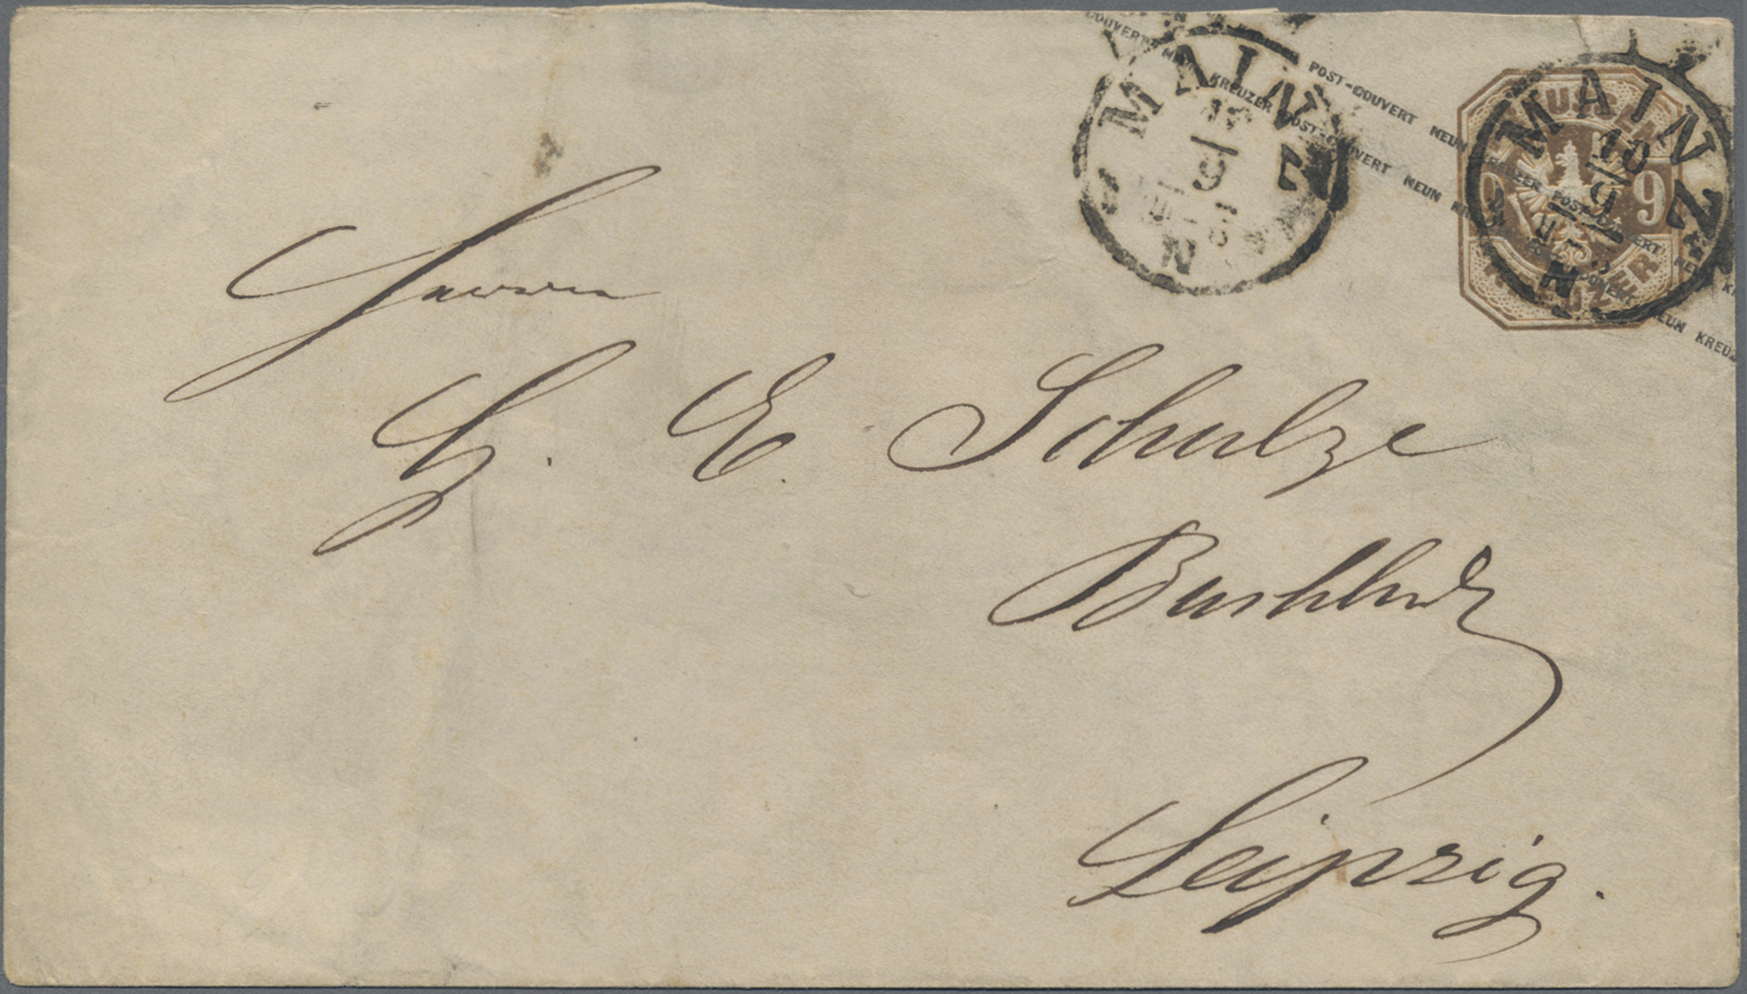 POST-COUVERT NEUN KREUZER POST-COUVERT NEUN KREUZER
COUVERT NEUN KREUZER POST-COUVERT NEUN KREUZER
MAINZ
10
9
N
MAINZ
10
9
N
9
9
KREUZER
Herrn
H. E. Schulze
Buchhdl
Leipzig.